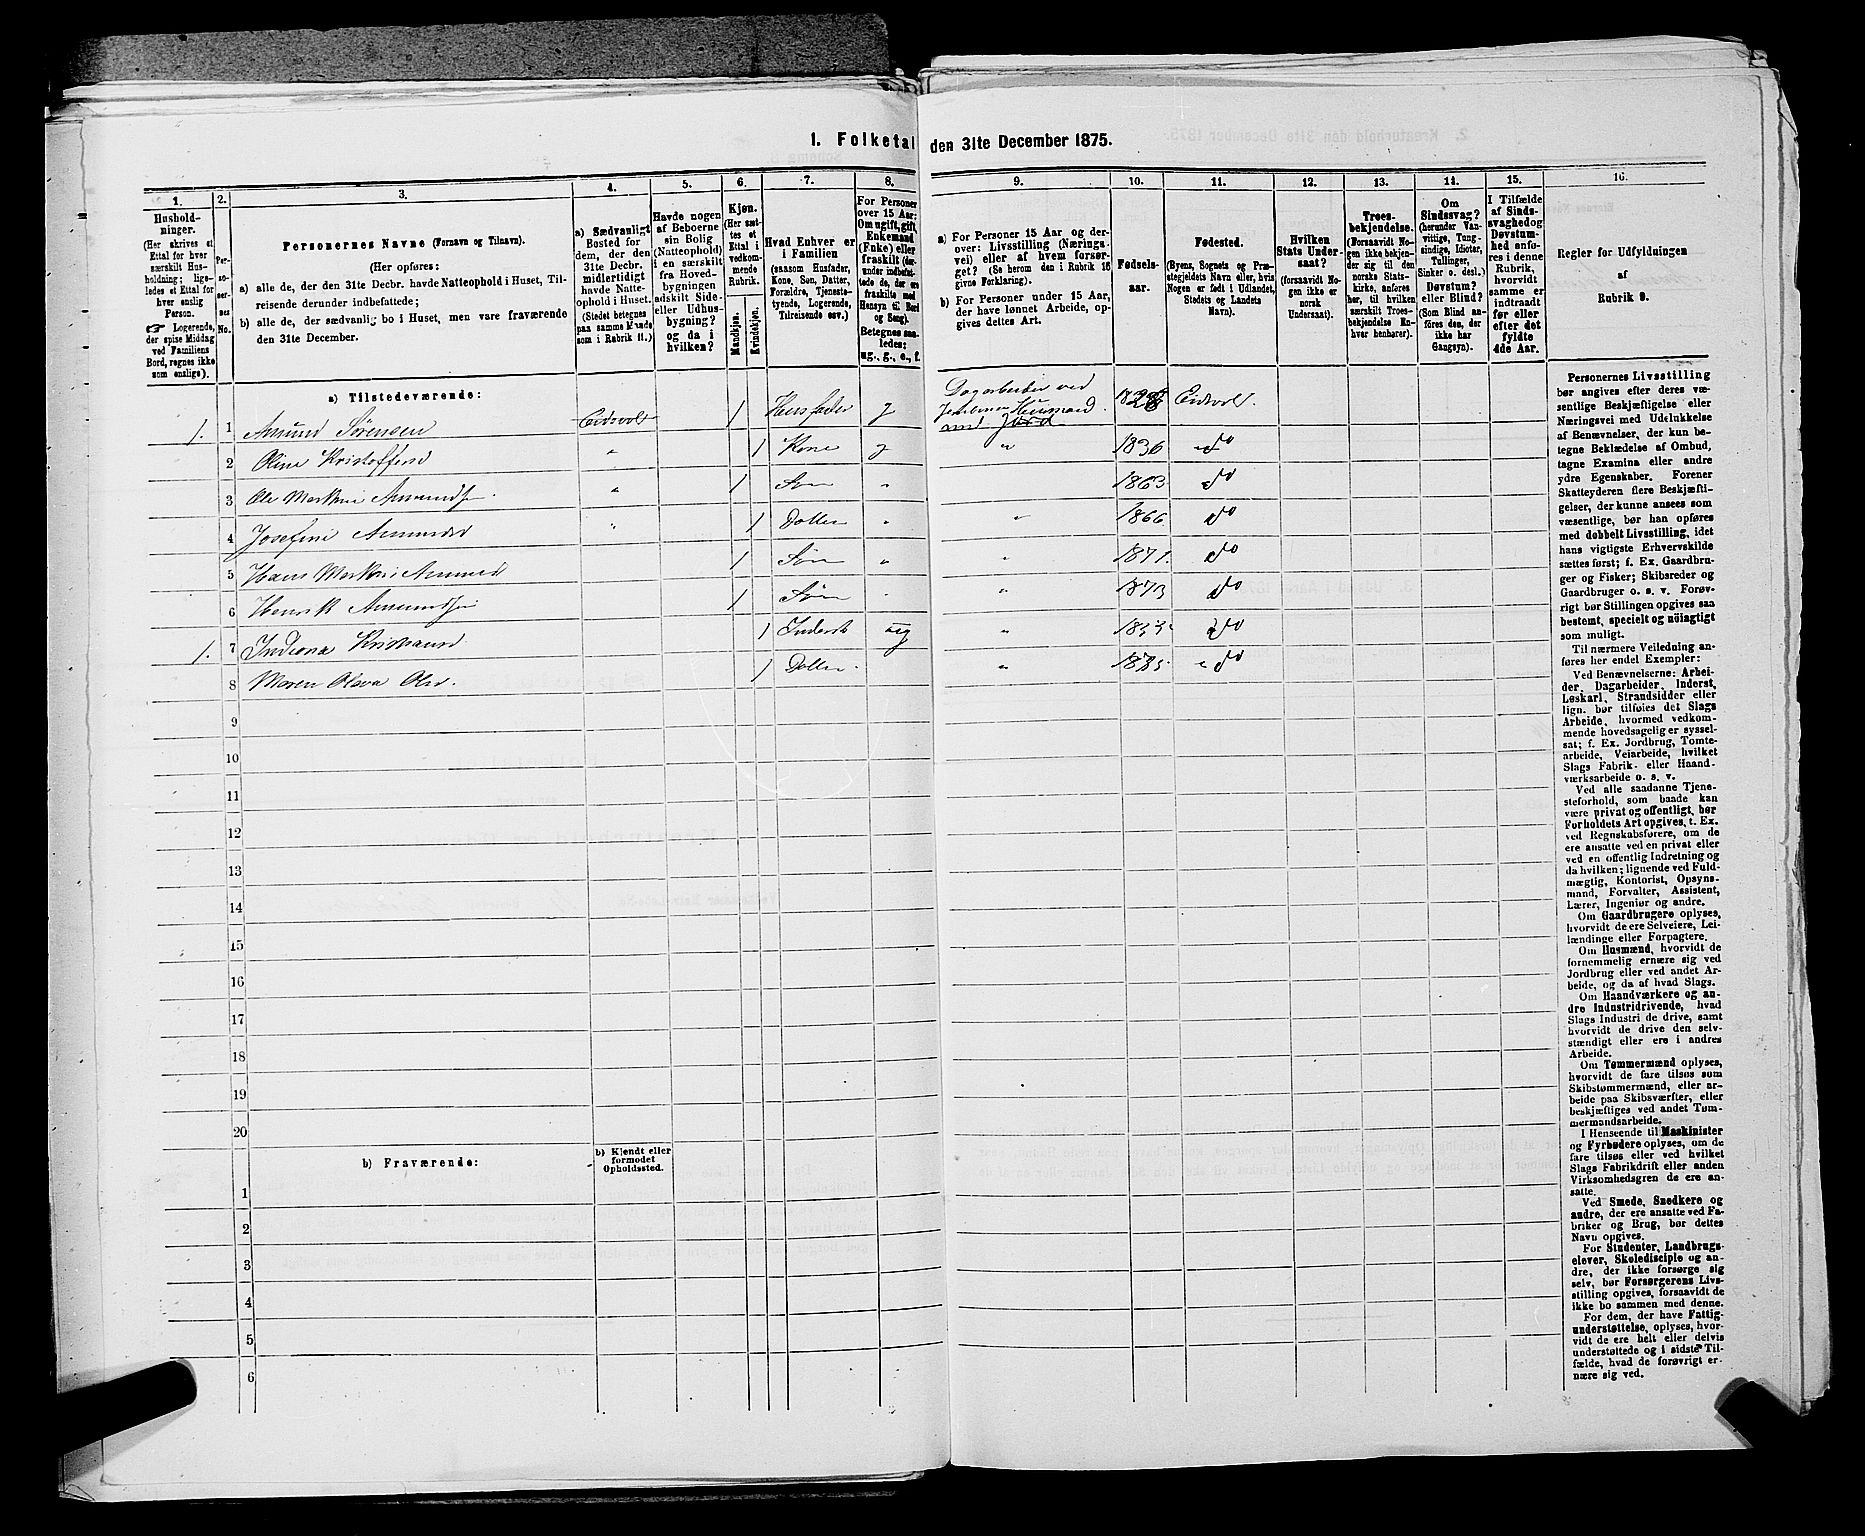 1. Folketal den 31te December 1875.
1. 2. 3. 4. 5. 6. 7. 8. 9. 10. 11. 12. 13. 14. 15. 16.
Hushold-
ninger.
(Her skrives et
Ettal for hver
særskilt Hus-
holdning; lige-
ledes et Ettal for
hver enslig
Person.
☞ Logerende,
der spise Middag
ved Familiens
Bord, regnes ikke
som enslige).
Per-
so-
ner-
nes
No.
Personernes Navne (Fornavn og Tilnavn).
(Her opføres:
a) alle de, der den 31te Decbr. havde Natteophold i Huset, Til-
reisende derunder indbefattede;
b) alle de, der sædvanlig bo i Huset, men vare fraværende
den 31te December.
a) Sædvanligt
Bosted for
dem, der den
31te Decbr.
midlertidigt
havde Natte-
ophold i Huset.
(Stedet betegnes
paa samme Maade
som i Rubrik 11.)
Havde nogen
af Beboerne
sin Bolig
(Natteophold)
i en særskilt
fra Hoved-
bygningen
adskilt Side-
eller Udhus-
bygning?
og da i
hvilken?
Kjøn.
(Her sæt-
tes et
Ettal i
vedkom-
mende
Rubrik.
Mandkjøn.
Kvindekjøn.
Hvad Enhver er
i Familien
(saasom Husfader,
Kone, Søn, Datter,
Forældre, Tjeneste-
tyende, Logerende,
Tilreisende osv.)
For Personer
over 15 Aar:
Om ugift, gift,
Enkemand
(Enke) eller
fraskilt (der-
under indbefat-
tede de, der ere
fraskilte med
Hensyn til Bord
og Seng).
Betegnes saa-
ledes:
ug., g., e., f.
a) For Personer 15 Aar og der-
over: Livsstilling (Nærings-
vei) eller af hvem forsør-
get? (Se herom den i Rubrik 16
givne Forklaring).
b) For Personer under 15 Aar,
der have lønnet Arbeide, op-
gives dettes Art.
Fødsels-
aar.
Fødested.
(Byens, Sognets og Præ-
stegjeldets Navn eller, hvis
Nogen er født i Udlandet,
Stedets og Landets
Navn).
Hvilken
Stats Under-
saat?
(forsaavidt No-
gen ikke er
norsk
Undersaat).
Troes-
bekjendelse.
(Forsaavidt No-
gen ikke bekjen-
der sig til den
norske Stats-
kirke, anføres
her, til hvilken
særskilt Troes-
bekjendelse En-
hver henhører).
Om
Sindssvag?
(herunder Van-
vittige, Tung-
sindige, Idioter,
Tullinger,
Sinker o. desl.)
Døvstum?
eller Blind?
(Som Blind an-
føres den, der
ikke har
Gangsyn).
I Tilfælde
af Sinds-
svaghed og
Døvstum-
hed anfø-
res i denne
Rubrik,
hvorvidt
samme er
indtraadt
før eller
efter det
fyldte
4de Aar.
Regler for Udfyldningen
af
Rubrik 9.
a) Tilstedeværende:
1. 1 Amund Sørensen Eidsvold 1 Husfader g Dagarbeider ved Husmand med Jord 1828 Eidsvold.
2 Oline Kristoffersd " 1 Kone g " 1836 do
3 Ole Martin Amundsen " 1 Søn " 1863 do
4 Josefine Amundsd " 1 Datter " " 1866 do
5 Hans Martin Amund 1 Søn " " 1871. do
6 Henrik Amundsen 1 Søn " " 1873 do
1. 7 Indiana Kristiansd 1 Inderst ug " 1833 do
8 Maren Olava Olsd. 1 Datter. " 1875. do
9
10
11
12
13
14
15
16
17
18
19
20
b) Fraværende:
b) Kjendt eller
formodet
Opholdssted.
1
2
3
4
5
6
Personernes Livsstilling
bør angives efter deres væ-
sentlige Beskjæftigelse eller
Næringsvei med Udelukkelse
af Benævnelser, der kun be-
tegne Beklædelse af Ombud,
tagne Examina eller andre
ydre Egenskaber. Forener
Skatteyderen flere Beskjæfti-
gelser, der kunne ansees som
væsentlige, bør han opføres
med dobbelt Livsstilling, idet
hans vigtigste Erhvervskilde
sættes først; f. Ex. Gaardbru-
ger og Fisker; Skibsreder og
Gaardbruger o. s. v. Forøv-
rigt bør Stillingen opgives saa
bestemt, specielt og nøiagtigt
som muligt.
Til nærmere Veiledning an-
føres her endel Exempler:
Ved Benævnelserne: Arbei-
der, Dagarbeider, Inderst,
Løskarl, Strandsidder eller
lign. bør tilføies det Slags
Arbeide, hvormed vedkom-
mende hovedsagelig er syssel-
sat; f. Ex. Jordbrug, Tomte-
arbeide, Veiarbeide, hvilket
Slags Fabrik- eller Haand-
værksarbeide o. s. v.
Ved alle saadanne Tjene-
steforhold, som baade kan
være privat og offentligt, bør
Forholdets Art opgives, t. Ex.
ved Regnskabsførere, om de
ere ansatte ved en privat eller
ved en offentlig Indretning og
da hvilken; lignende ved Fuld-
mægtig, Kontorist, Opsyns-
mand, Forvalter, Assistent,
Lærer, Ingeniør og andre.
Om Gaardbrugere oplyses,
hvorvidt de ere Selveiere, Lei-
lændinge eller Forpagtere.
Om Husmænd, hvorvidt de
fornemmelig ernære sig ved
Jordbrug eller ved andet Ar-
beide, og da af hvad Slags.
Om Haandværkere og an-
dre Industridrivende, hvad
Slags Industri de drive, samt
hvorvidt de drive den selv-
stændigt eller ere i andres
Arbeide.
Om Tømmermænd oplyses,
hvorvidt de fare tilsøs som
Skibstømmermænd, eller ar-
beide paa Skibsværfter, eller
beskjæftiges ved andet Tøm-
mermandsarbeide.
I Henseende til Maskinister
og Fyrbødere oplyses, om de
fare tilsøs eller ved hvilket
Slags Fabrikdrift eller anden
Virksomhedsgren de ere an-
satte.
Ved Smede, Snedkere og
andre, der ere ansatte ved Fa-
briker og Brug, bør dettes
Navn opgives.
For Studenter, Landbrugs-
elever, Skoledisciple og an-
dre, der ikke forsørge sig
selv, bør Forsørgerens Livs-
stilling opgives, forsaavidt de
ikke bo sammen med denne.
For dem, der have Fattig-
understøttelse, oplyses, hvor-
vidt de ere helt eller delvis
understøttede og i sidste Til-
fælde, hvad de forøvrigt er-
nære sig ved.